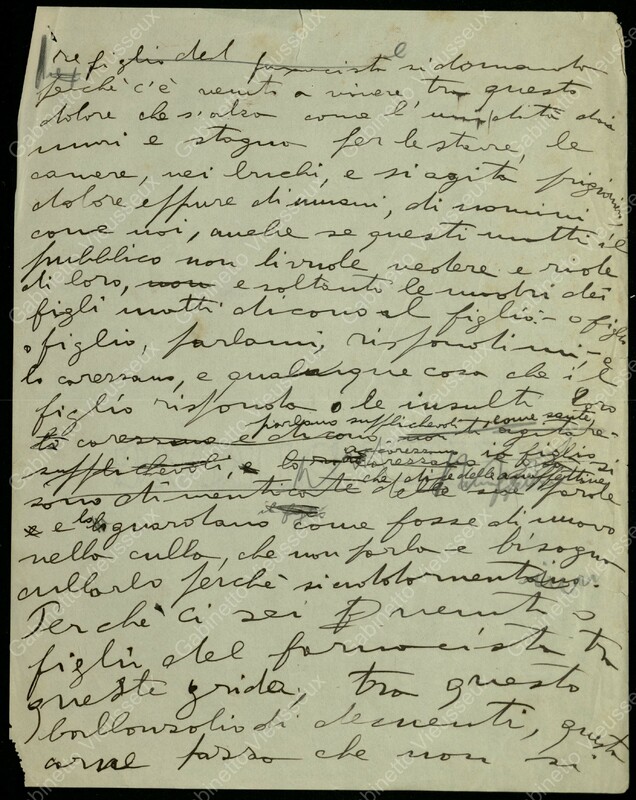 re figlio del farmacista si domanda
perchè c'è venuto a vivere tra questo
dolore che s'alza come l'umidità dai
muri e stagna per le stanze, le
camere, nei buchi, e si agita prigioniero,
dolore eppure di umani, di uomini
come noi, anche se questi matti il
pubblico non li vuole vedere e ride
di loro, non e soltanto le madri dei
figli matti dicono al figlio: - o figlio
o figlio, parlami, rispondimi, - e
lo carezzano, e qualunque cosa che il
figlio risponda o le insulti loro
parlano supplichevoli come sente
la carezzano e dicono
supplichevoli, e lo carezzano io figlio si
che di
sono dimenticate delle sue parole
e e lo guardano come fosse di nuovo
nella culla, che non parla e bisogna
cullarlo perchè si addormenti.
Perchè ci sei venuto o
figlio del farmacista tra
queste grida, tra questo
di dementi, questa
carne pazza che non si
Gabinetto Vieusseux